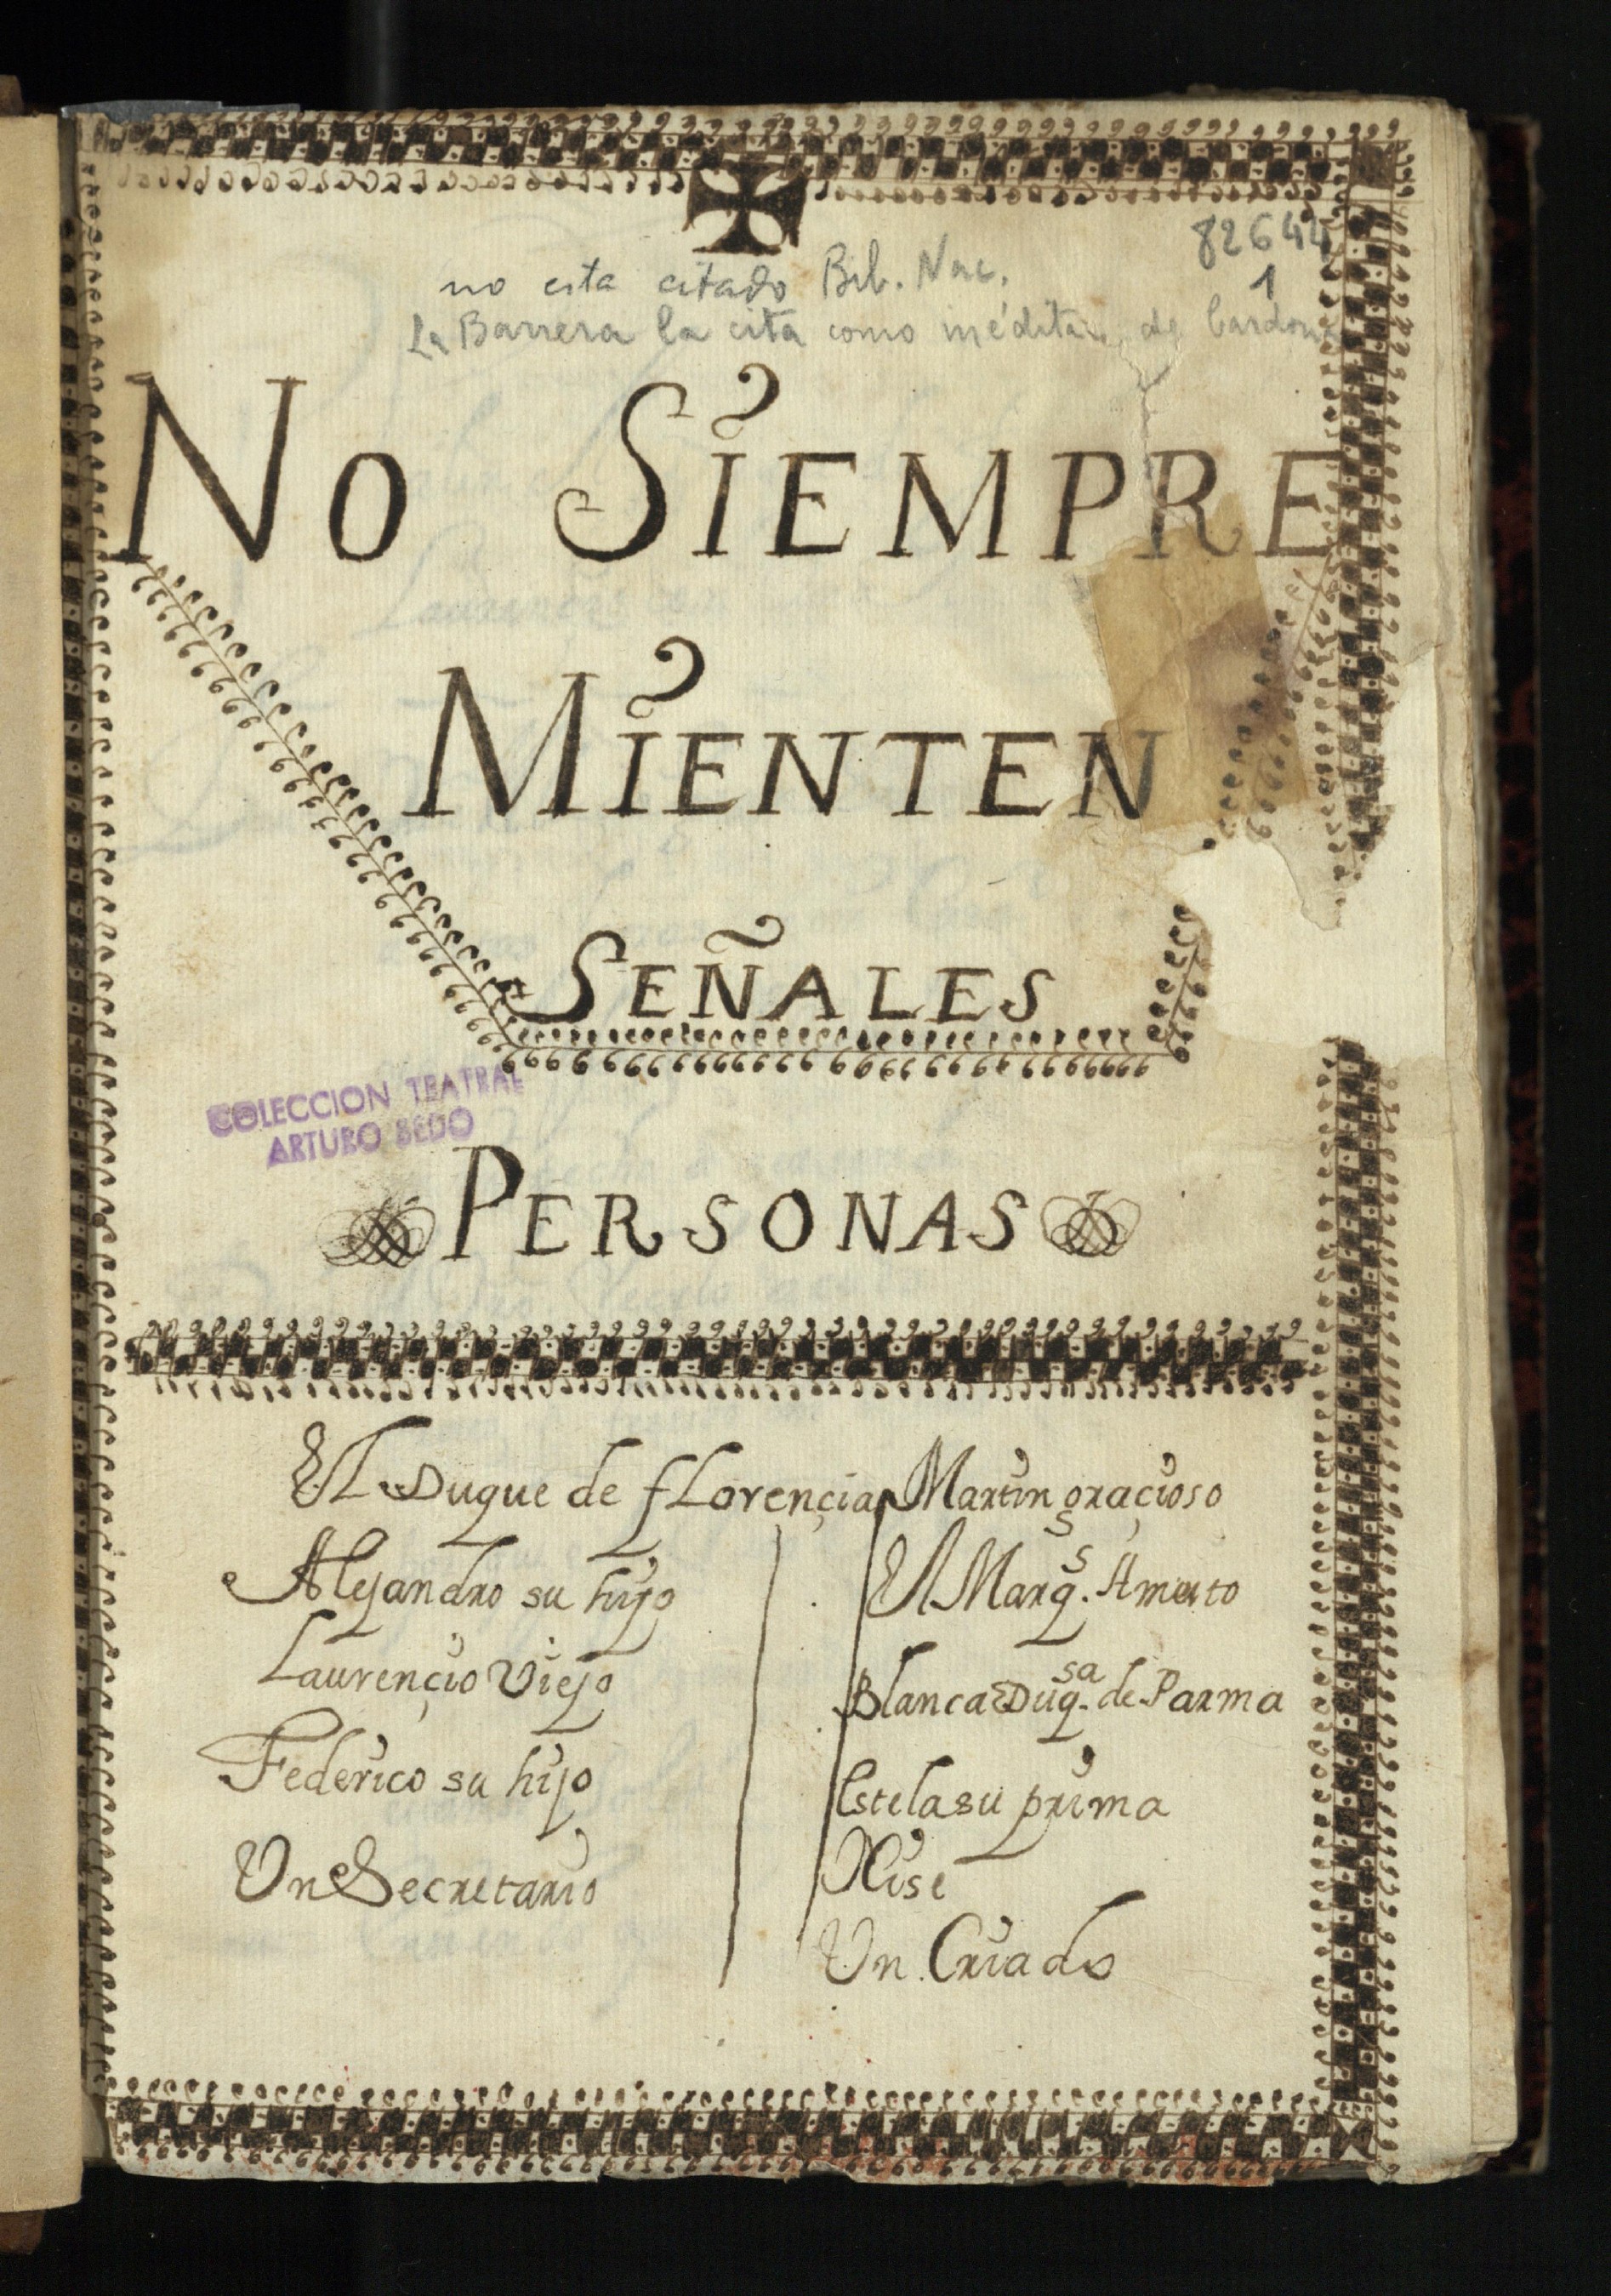 82644
1
no esta citado Bib. Nac.
La Barrera la cita como inédita de Cardona
NO SIEMPRE
MIENTEN
SEÑALES
COLECCION TEATRAL
ARTURO SEDO
PERSONAS
El Duque de fLorençia
Alejandro su hijo
Laurençio Viejo
Federico su hijo
Un Secretario
Martin graçioso
El Marq.s Amato
Blanca Duq.sa de Parma
Estela su prima
Nise
Un Criado